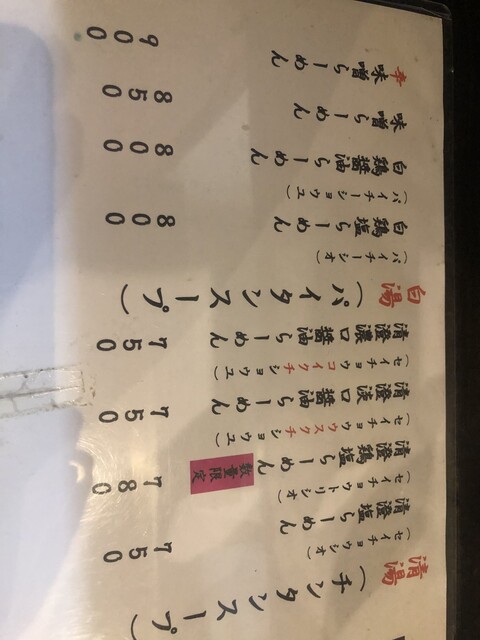 清湯(チンタンスープ)
(セイチョウシオ)
清澄塩らーめん 750
(セイチョウトリシオ)
清澄鶏塩らーめん 数量限定 780
(セイチョウウスクチショウユ)
清澄淡口醤油らーめん 750
(セイチョウコイクチショウユ)
清澄濃口醤油らーめん 750
白湯(パイタンスープ)
(パイチーシオ)
白鶏塩らーめん 800
(パイチーショウユ)
白鶏醤油らーめん 800
味噌らーめん 850
辛味噌らーめん 900